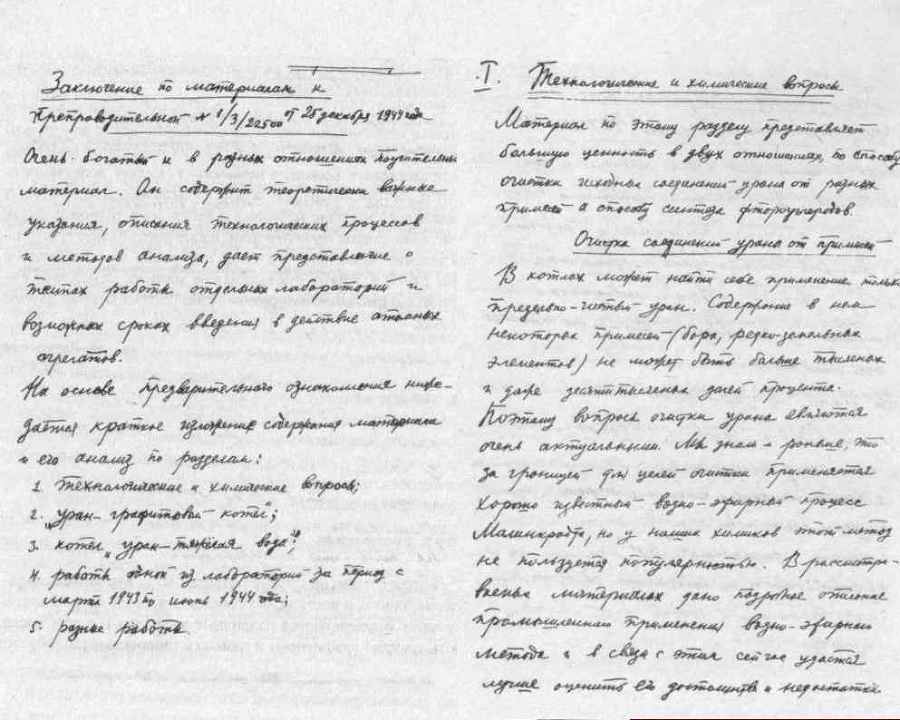 Заключение по материалам к
Препроводительной № 1/3/22500 от 25 декабря 1944 года
Очень богатый и в разных отношениях поучительный
материал. Он содержит теоретически важные
указания, описания технологических процессов
и методов анализа, дает представление о
темпах работы отдельных лабораторий и
возможных сроках введения в действие атомных
агрегатов.
На основе предварительного ознакомления ниже
дается краткое изложение содержания материала
и его анализ по разделам:
1. Технологические и химические вопросы;
2. „уран-графитовый котел";
3. котел „уран-тяжелая вода";
4. работы одной из лабораторий за период с
марта 1943 по июнь 1944 года;
5. разные работы.
I. Технологические и химические вопросы
Материал по этому разделу представляет
большую ценность в двух отношениях, по способу
очистки исходных соединений урана от разных
примесей и способу синтеза фтороуглеродов.
Очистка соединений урана от примесей
В котлах может найти себе применение только
предельно-чистый уран. Содержание в нем
некоторых примесей (бора, редко-земельных
элементов) не может быть больше тысячных
и даже десятитысячных долей процента.
Поэтому вопросы очистки урана являются
очень актуальными. Мы знали и раньше, что
за границей для целей очистки применяется
хорошо известный водно-эфирный процесс
Малинкродта, но у наших химиков этот метод
не пользуется популярностью. В рассматри-
ваемых материалах дано подробное описание
промышленного применения водно-эфирного
метода и в связи с этим сейчас удается
лучше оценить его достоинства и недостатки.